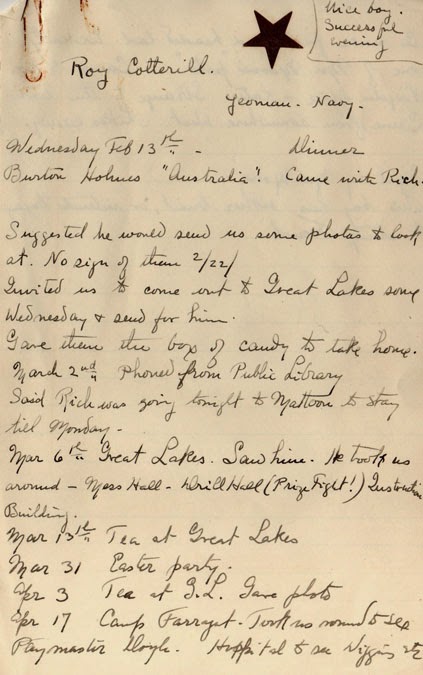 Nice boy.
Successful
evening
Roy Cotterill.
Yeoman. Navy.
Wednesday Feb 13th - Dinner
Burton Holmes "Australia"! Came with Rich.
Suggested he would send us some photos to look
at. No sign of them 2/22/
Invited us to come out to Great Lakes some
Wednesday & send for him.
Gave them the box of candy to take home.
March 2nd Phoned from Public Library
Said Rich was going tonight to Mattoon to stay
till Monday -
Mar 6th Great Lakes. Saw him. He took us
around - Mess Hall - Drill Hall (Prize Fight!) Instruction
Building.
Mar 13th Tea at Great Lakes
Mar 31 Easter party.
Apr 3 Tea at G.L. Gave photo
Apr 17 Camp Farragut - Took us round to see
Paymaster Hospital to see etc